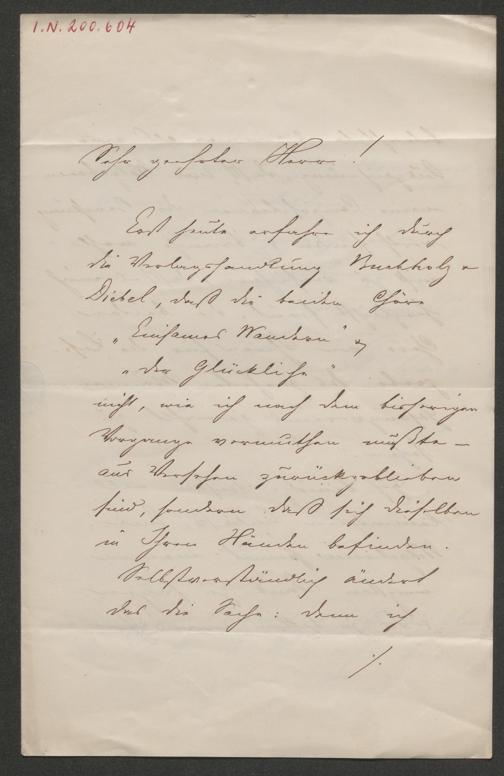 I.N. 200.604
Sehr geehrter Herr!
Erst heute erfahre ich durch
die Verlagshandlung Buchholz &
Diebel, daß die beiden Chöre
„Einsames Wandern" &
„der Glückliche"
nicht, wie ich nach dem bisherigen
Vorgange vermuthen mußte –
aus Versehen zurückgeblieben
sind, sondern daß sich dieselben
in Ihren Händen befinden.
Selbstverständlich ändert
das die Sache: denn ich
./.